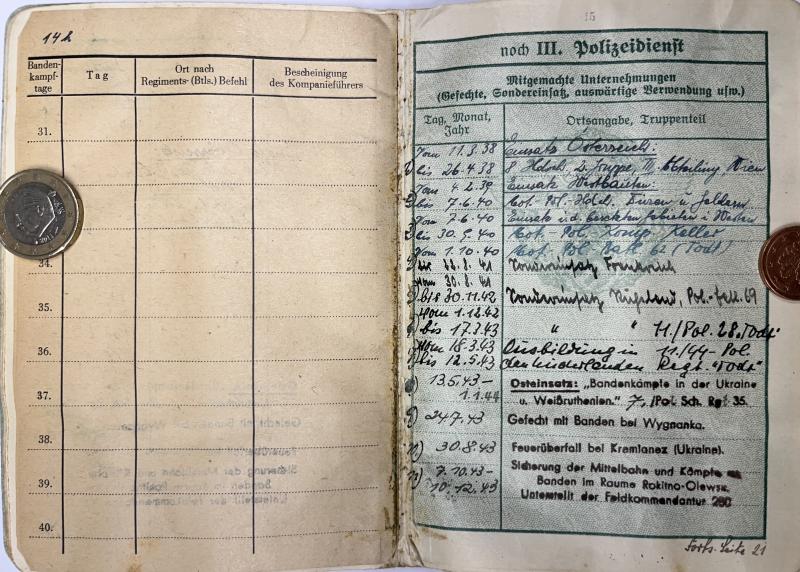 14 b
Banden-
kampf-
tage
Tag
Ort nach
Regiments- (Btls.) Befehl
Bescheinigung
des Kompanieführers
31.
34.
35.
36.
37.
38.
39.
40.
15
noch III. Polizeidienst
Mitgemachte Unternehmungen
(Gefechte, Sondereinsatz, auswärtige Verwendung usw.)
Tag, Monat,
Jahr
Ortsangabe, Truppenteil
Vom 11.3.38 Einsatz Österreich:
bis 26.4.38 Abteilung, Wien
Vom 4.2.39 Einsatz Westbauten:
bis 7.6.40 Mot. Pol. Düren u. Geldern
Vom 7.6.40 Einsatz i. d. besetzten Gebieten i. Westen
bis 30.9.40 Mot.- Pol.- Komp. Keller
Vom 1.10.40 Mot. Pol. Batl. 62 (Todt)
bis 41 Sondereinsatz Frankreich
Vom 30.8.41
bis 30.11.42 Sondereinsatz Rußland, Pol.- 69
Vom 1.12.42
bis 17.3.43 " " 11./Pol. 28 „Todt"
Vom 18.3.43 Ausbildung in 11/SS- Pol.
bis 12.5.43 den Niederlanden Regt. "Todt"
13.5.43 – Osteinsatz: „Bandenkämpfe in der Ukraine
1.1.44 u. Weißruthenien." 7./Pol. Sch. Rgt 35.
24.7.43 Gefecht mit Banden bei Wygnanka.
30.8.43 Feuerüberfall bei Kremianez (Ukraine).
7.10.43– Sicherung der Mittelbahn und Kämpfe
10.12.43 Banden im Raume Rokitno-Olewsk.
Unterstellt der Feldkommandantur
Forts. Seite 21